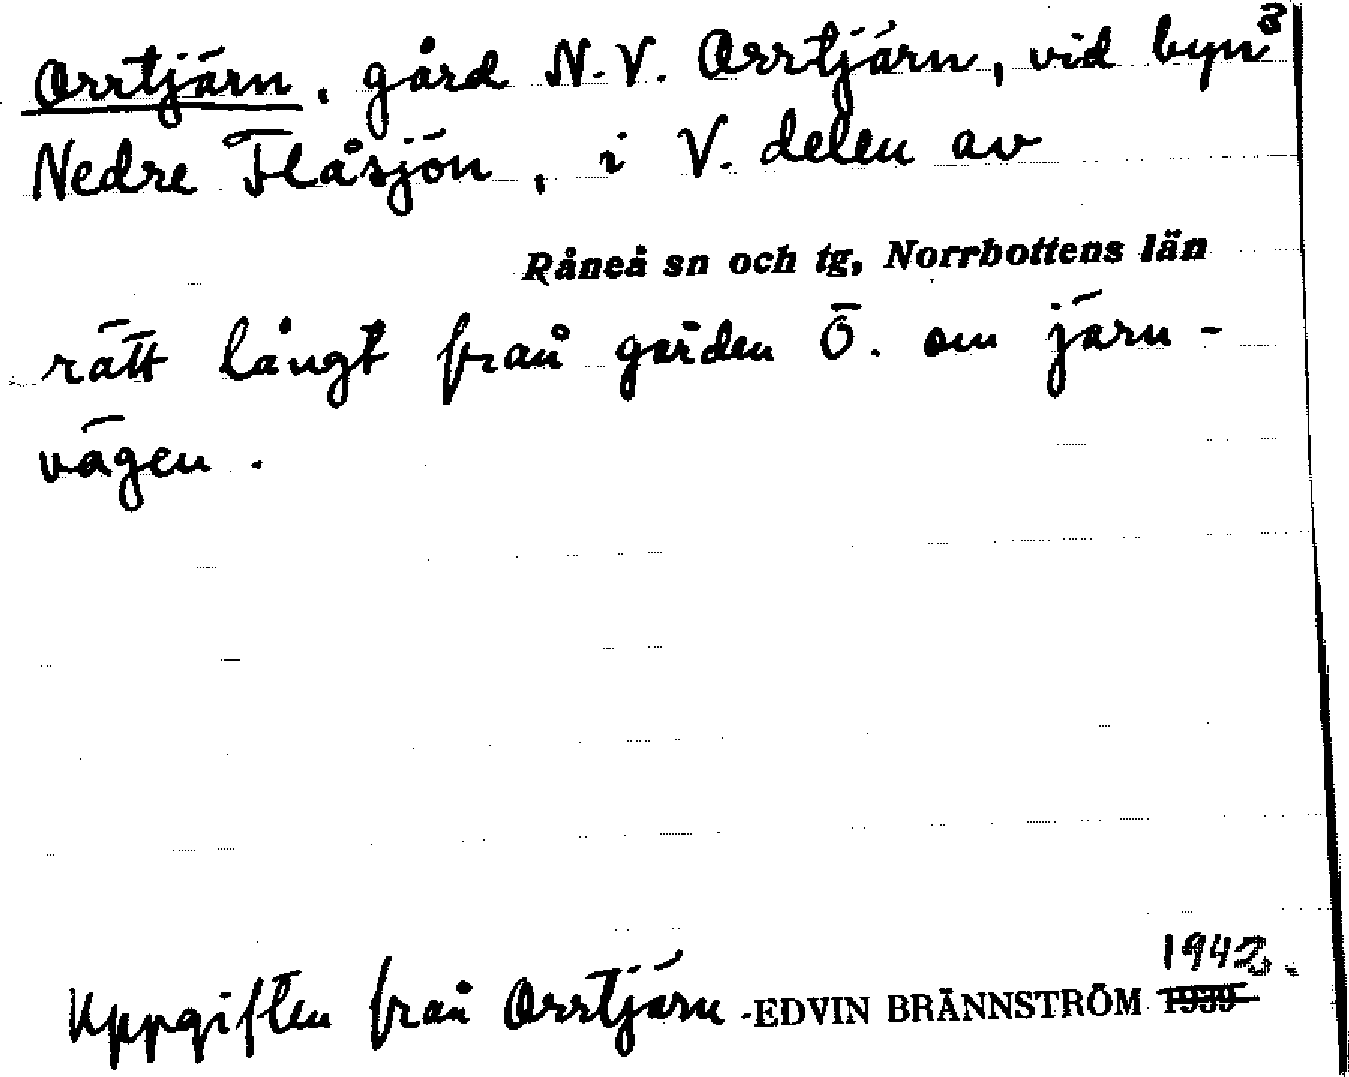 Orrtjärn, gård N.V. Orrtjärn, vid byn
Nedre Flåsjön, i V. delen av
Råneå sn och tg, Norrbottens län
rätt långt från gården Ö. om järn-
vägen.
1942.
Uppgiften från Orrtjärn - EDVIN BRÄNNSTRÖM 1939